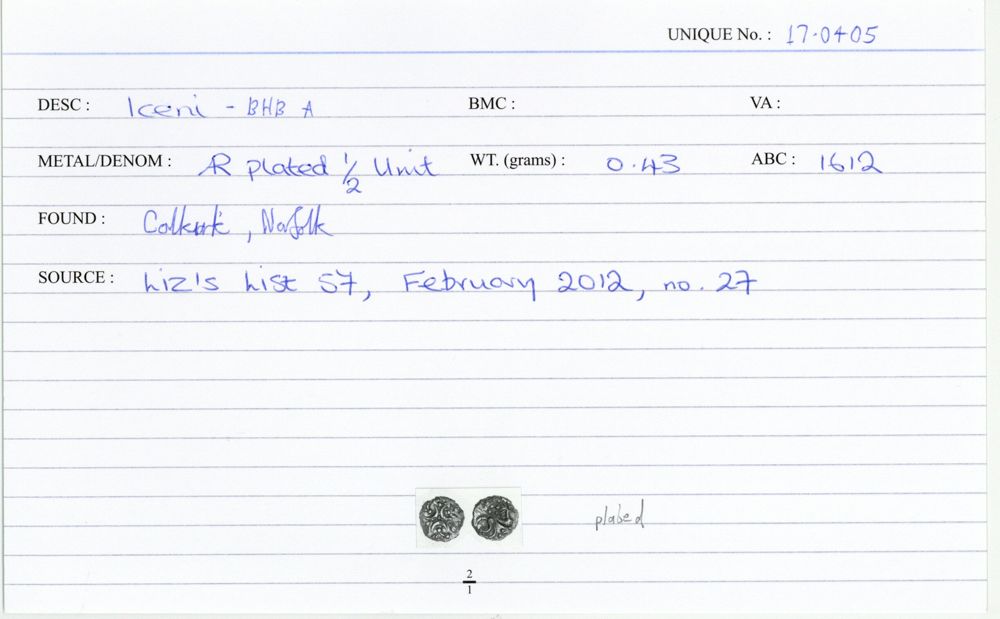 UNIQUE No. : 17.0405
DESC : Iceni - BHB A BMC : VA :
METAL/DENOM : AR plated 1/2 Unit WT. (grams) : 0.43 ABC : 1612
FOUND : Colkirk, Norfolk
SOURCE : Liz's List 57, February 2012, no. 27
plated
2
1